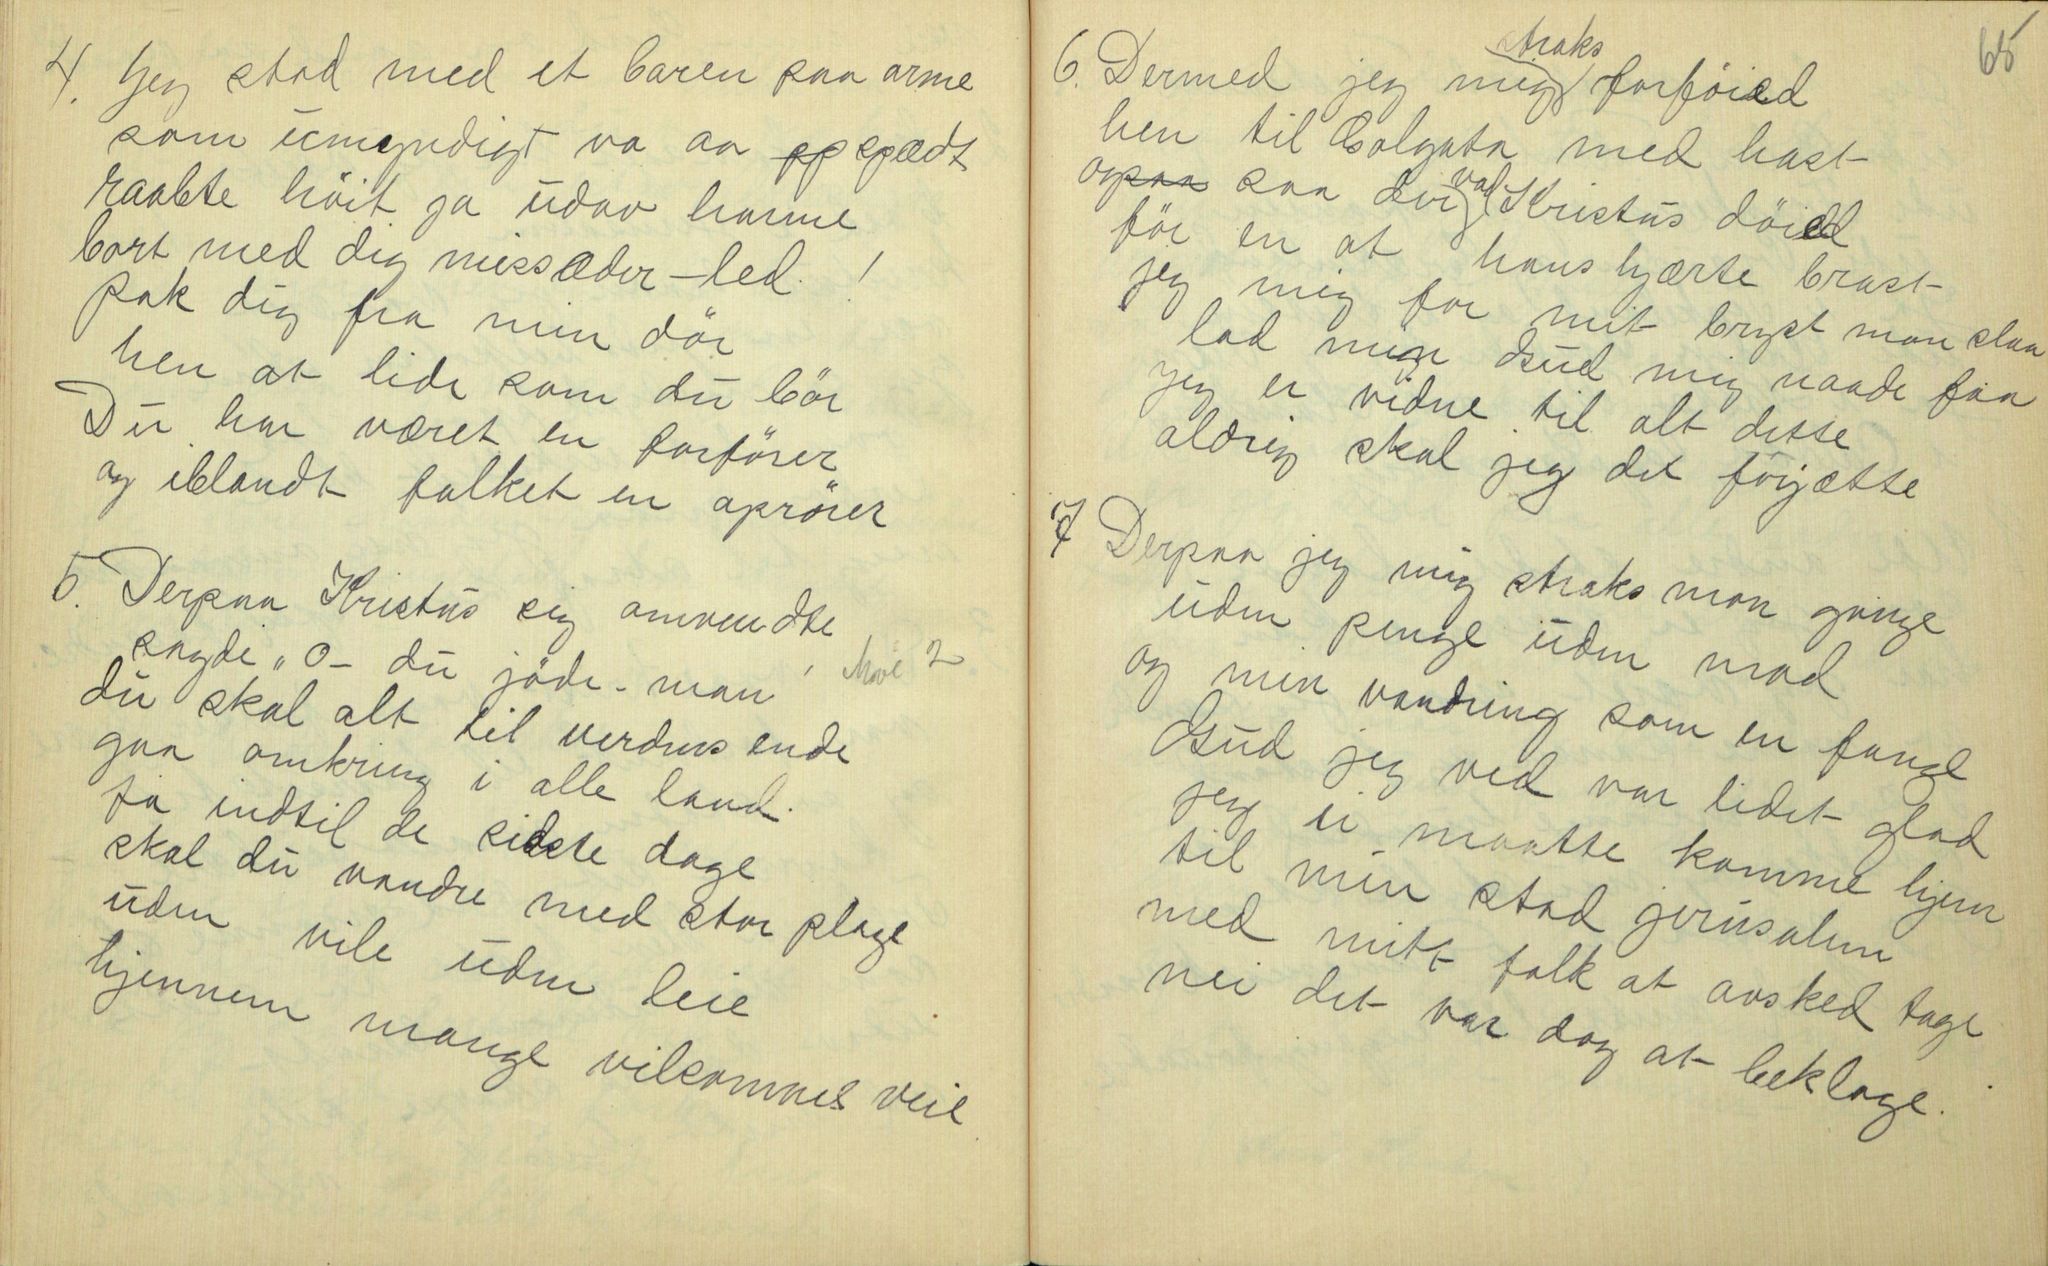 4. Jeg stod med et baren paa arme
som umyndigt va aa spædt
raabte höit ja udav harme
bort med dig missæder-led. !
pak dig fra min dör
hen at lide som du bör
Du har været en forförer
og iblandt folket en oprörer
5. Derpaa Kristus sig omvendte
sagde „o- du jöde-man
du skal alt til verdens ende
gaa omkring i alle land.
ja indtil de sidste dage
skal du vandre med stor plage
uden vile uden leie
hjennem mange vilsommes veie
65
6. Dermed jeg mig straks forföied
hen til Golgata med hast
og saa der vad Kristus döied
för en at hans hjærte brast
jeg mig for mit bryst mon slaa
lad min Gud mig naade faa
jeg er vidne til alt dette
aldrig skal jeg det förjætte
7 Derpaa jeg mig straks mon gange
uden penge uden mad
og min vandring som en fange
Gud jeg ved var lidet glad
jeg ei maatte komme hjem
til min stad jerusalem
med mitt folk at avsked tage
nei det var dog at beklage.